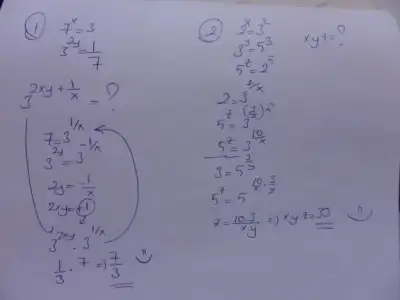 1
7^x = 3
3^{2y} = 1/7
3^{2xy + 1/x} = ?
7 = 3^{1/x}
3^{2y} = 3^{-1/x}
2y = -1/x
2xy = -1
3^{2xy} · 3^{1/x}
1/3 · 7 => 7/3
2
2^x = 3^2
xyz = ?
3^y = 5^3
5^z = 2^5
2 = 3^{2/x}
5^z = 3^{(2/x)·5}
5^z = 3^{10/x}
3 = 5^{3/y}
5^z = 5^{10/x · 3/y}
z = 10·3/x·y => xyz = 30